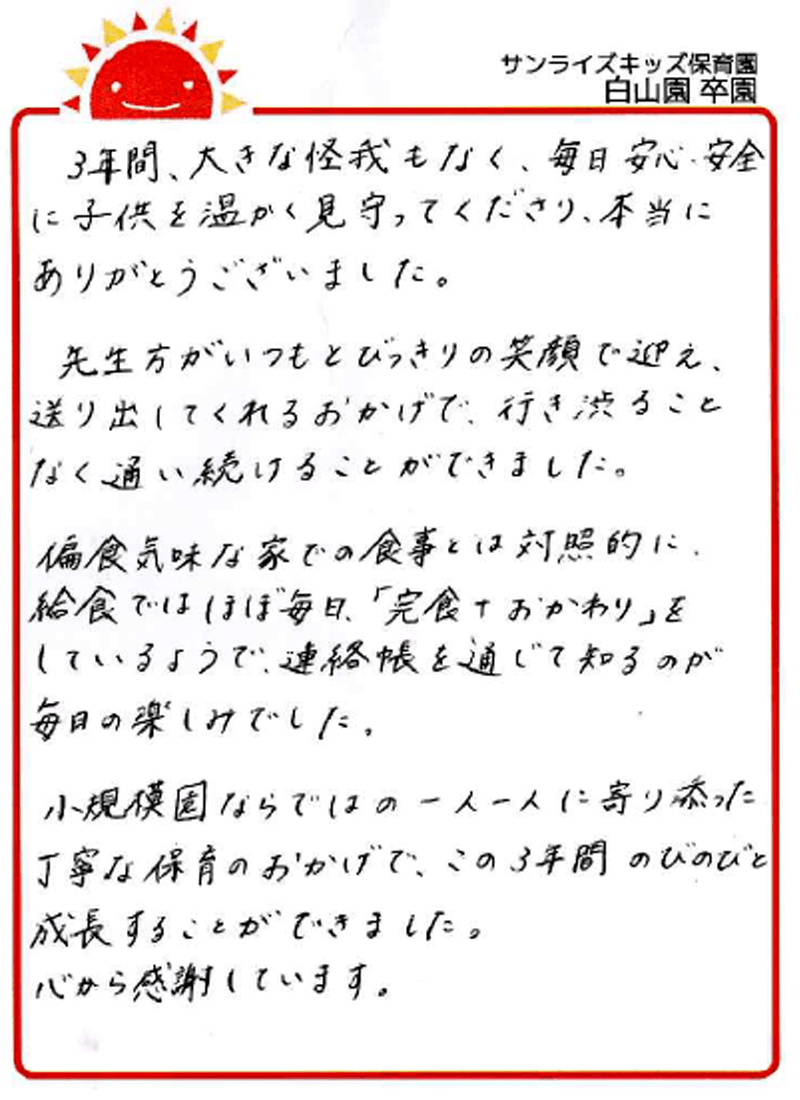 サンライズキッズ保育園
白山園 卒園
3年間、大きな怪我もなく、毎日安心・安全
に子供を温かく見守ってくださり、本当に
ありがとうございました。
先生方がいつもとびっきりの笑顔で迎え、
送り出してくれるおかげで、行き渋ること
なく通い続けることができました。
偏食気味な家での食事とは対照的に、
給食ではほぼ毎日、「完食+おかわり」を
しているようで、連絡帳を通じて知るのが
毎日の楽しみでした。
小規模園ならではの一人一人に寄り添った
丁寧な保育のおかげで、この3年間のびのびと
成長することができました。
心から感謝しています。